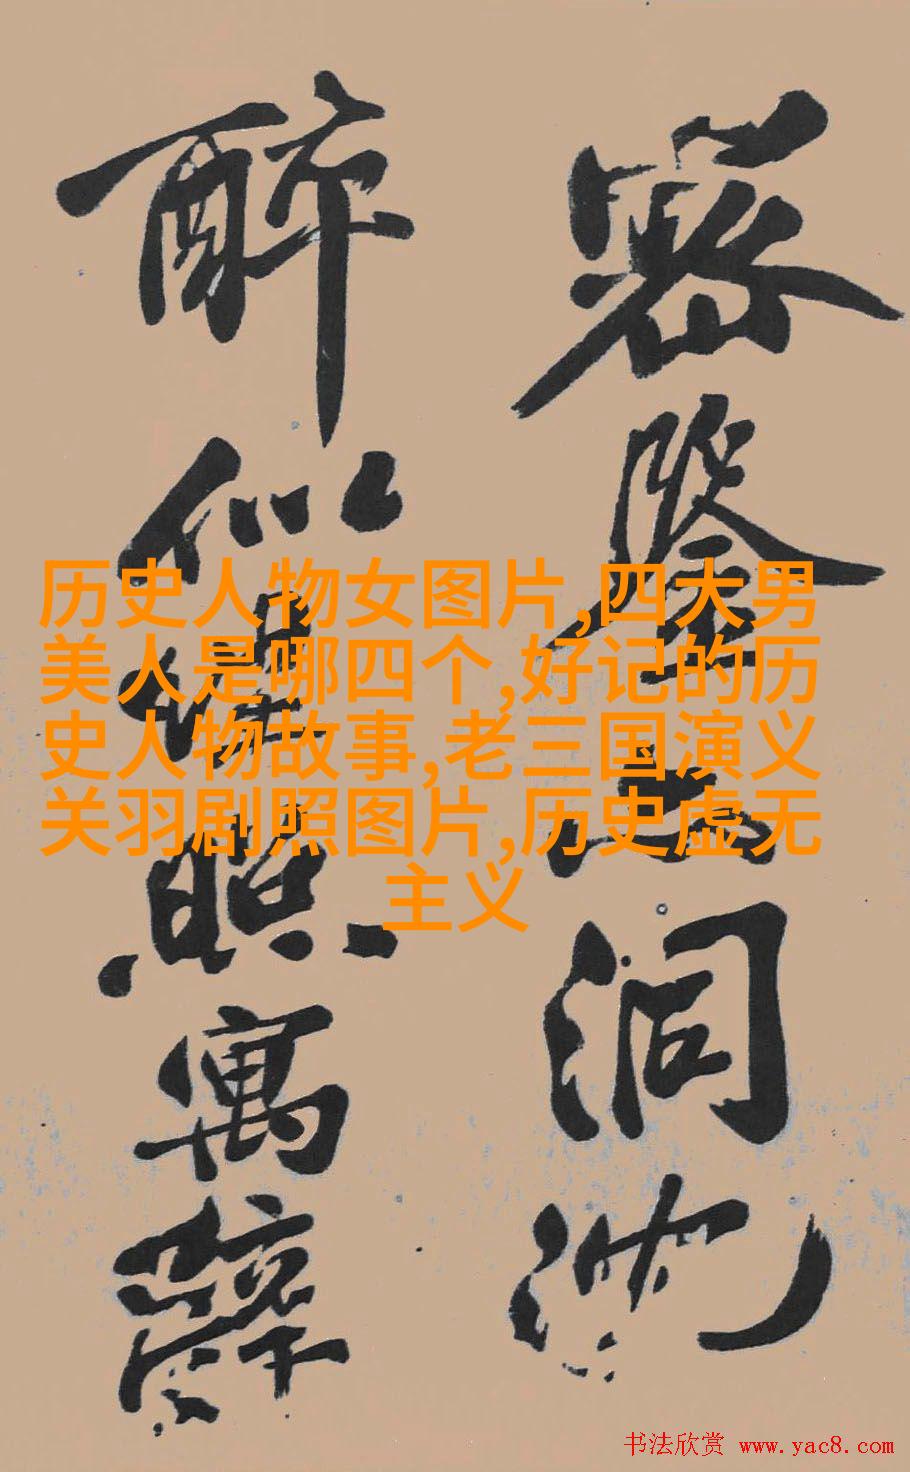 密鑒亦洞沈
醉似埋照寓辭
历史人物女图片,四大男
美人是哪四个,好记的历
史人物故事,老三国演义
关羽剧照图片,历史虚无
主义
书法欣赏 www.yac8.com